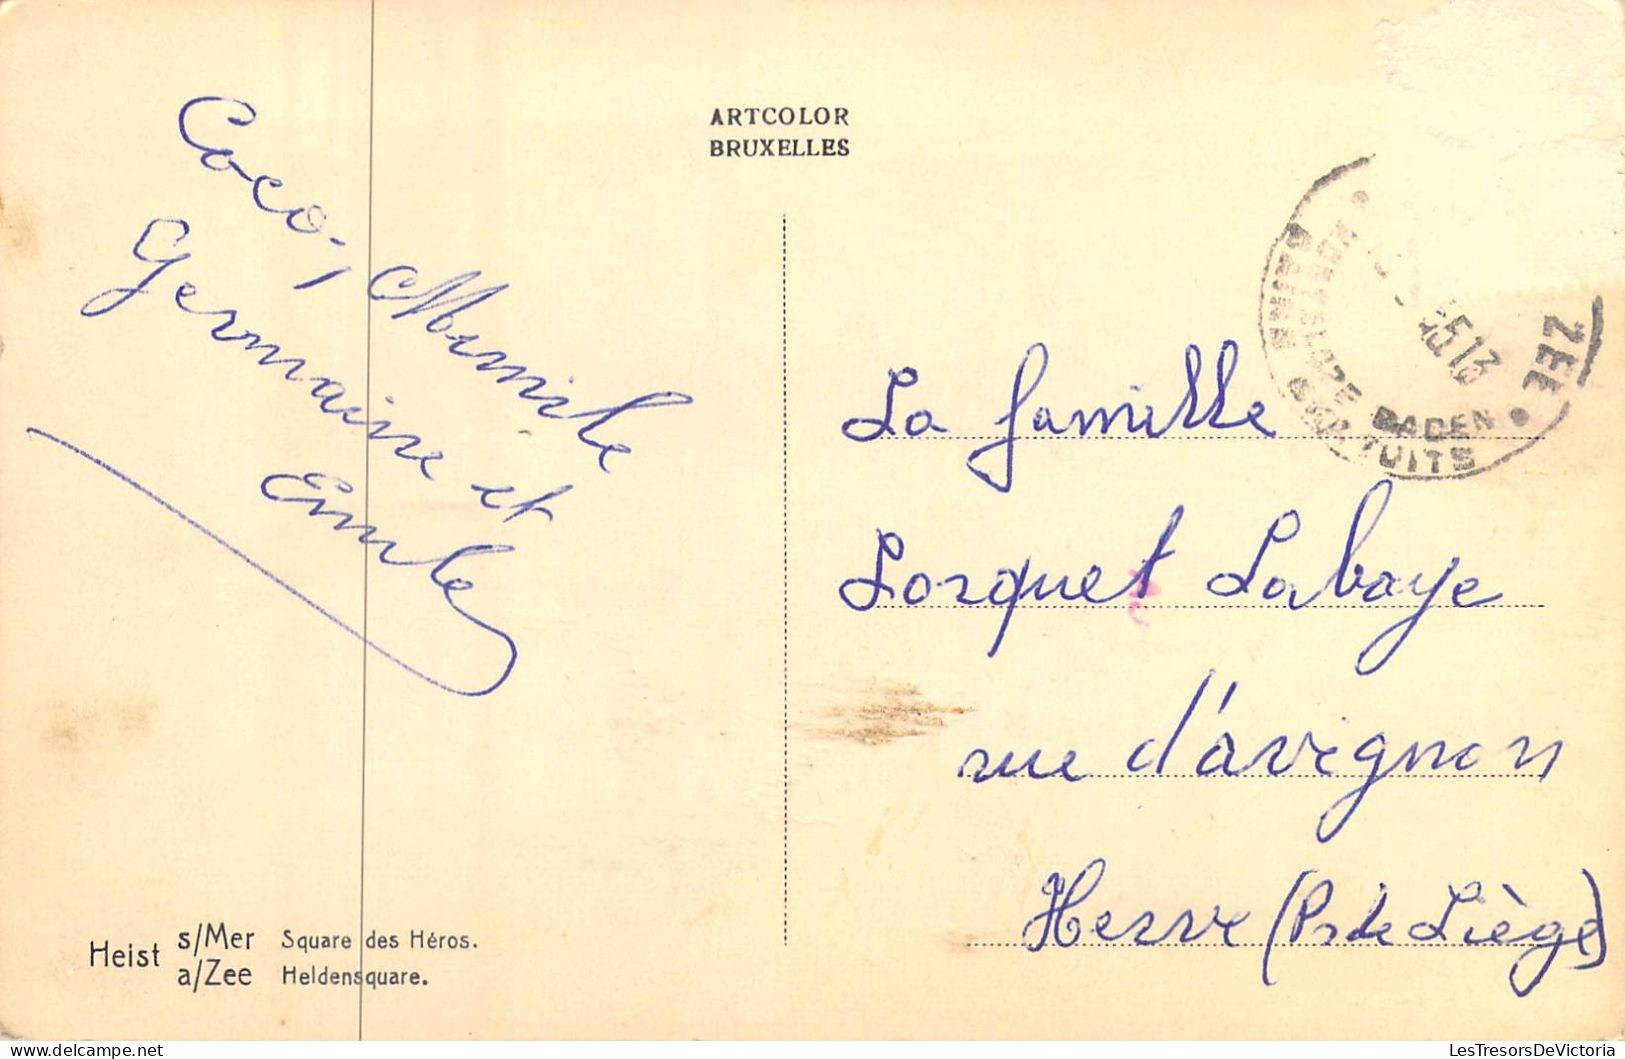 ARTCOLOR
BRUXELLES
Coco, Mimile
Germaine et
Emile
ZEE
BADEN
BAINS GRATUITS
La famille
Lorquet Labaye
rue d'avignon
Herve (Pr de Liège)
Heist s/Mer Square des Héros.
a/Zee Heldensquare.
LesTresorsDeVictoria